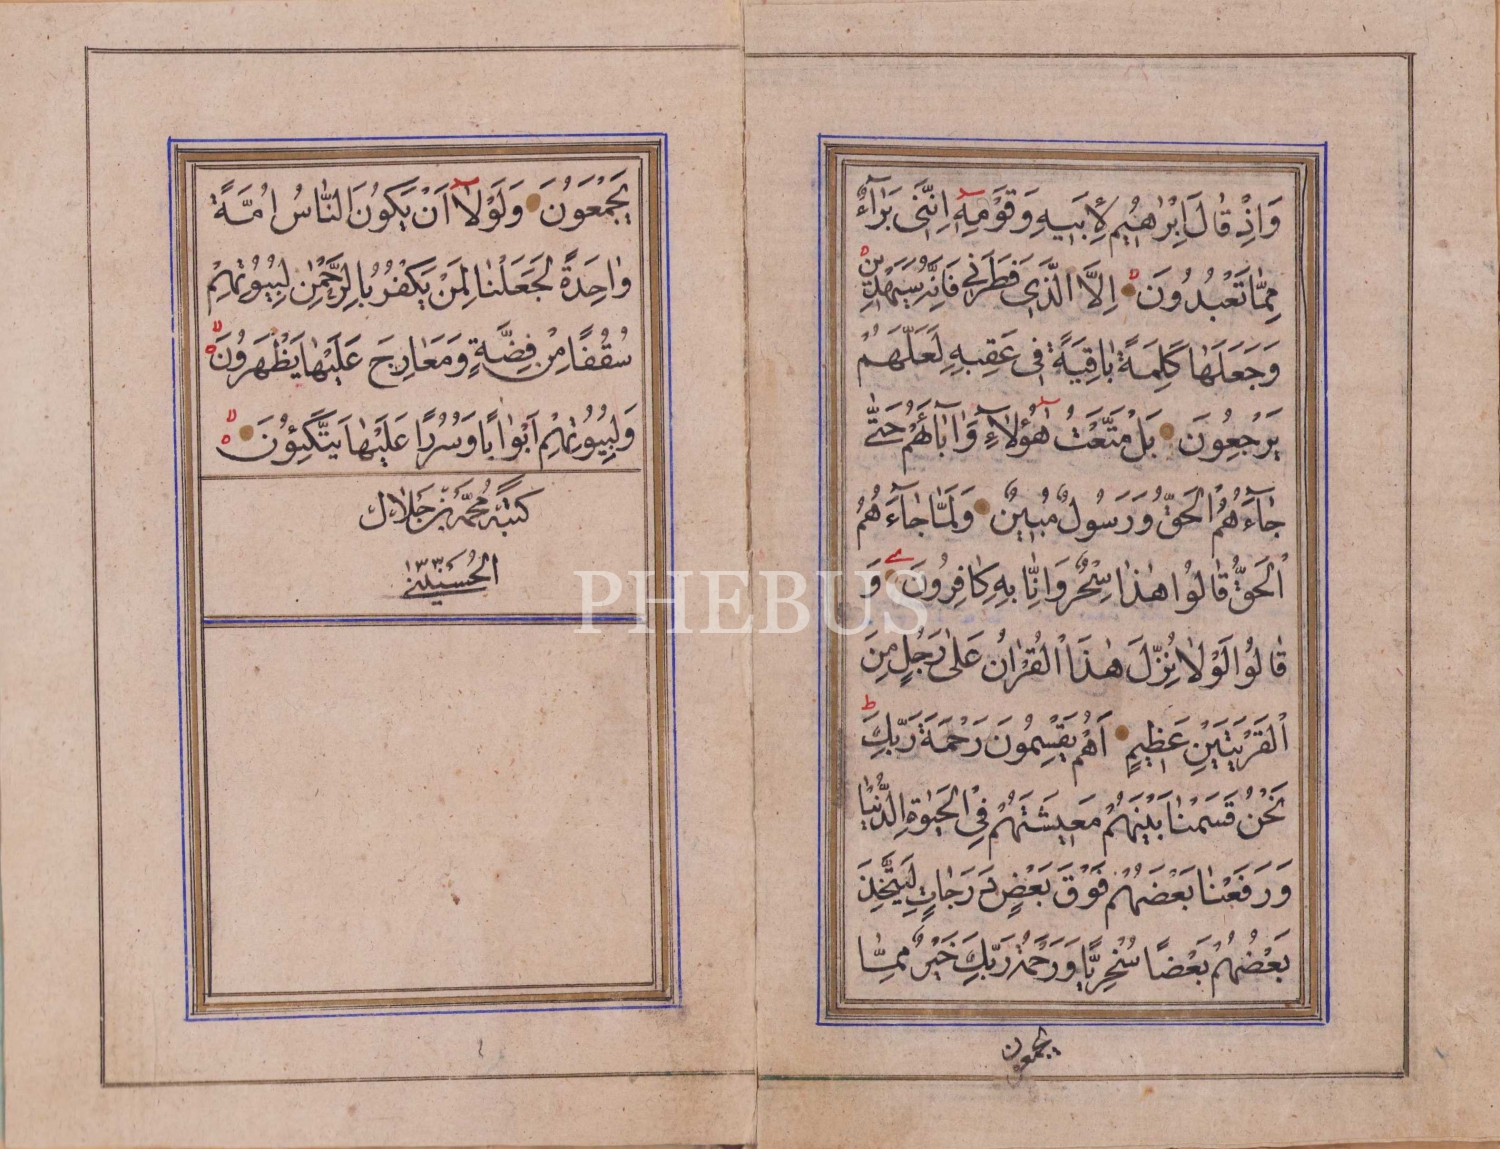 وَاِذْ قٰالَ اِبْرٰاهٖيمُ لِاَبٖيهِ وَقَوْمِهٖٓ اِنَّنٖى بَرَآءٌ
مِمّٰا تَعْبُدُونَ اِلَّا الَّذٖى فَطَرَنٖى فَاِنَّهُ سَيَهْدٖينِ
وَجَعَلَهٰا كَلِمَةً بٰاقِيَةً فٖى عَقِبِهٖ لَعَلَّهُمْ
يَرْجِعُونَ بَلْ مَتَّعْتُ هٰٓؤُلٰآءِ وَاٰبٰآءَهُمْ حَتّٰى
جٰآءَهُمُ الْحَقُّ وَرَسُولٌ مُبٖينٌ وَلَمّٰا جٰآءَهُمُ
الْحَقُّ قٰالُوا هٰذٰا سِحْرٌ وَاِنّٰا بِهٖ كٰافِرُونَ وَ
قٰالُوا لَوْلٰا نُزِّلَ هٰذَا الْقُرْاٰنُ عَلٰى رَجُلٍ مِنَ
الْقَرْيَتَيْنِ عَظٖيمٍ اَهُمْ يَقْسِمُونَ رَحْمَةَ رَبِّكَ
نَحْنُ قَسَمْنٰا بَيْنَهُمْ مَعٖيشَتَهُمْ فِى الْحَيٰوةِ الدُّنْيٰا
وَرَفَعْنٰا بَعْضَهُمْ فَوْقَ بَعْضٍ دَرَجٰاتٍ لِيَتَّخِذَ
بَعْضُهُمْ بَعْضًا سُخْرِيًّا وَرَحْمَةُ رَبِّكَ خَيْرٌ مِمّٰا
يجمعون
يَجْمَعُونَ وَلَوْلٰٓا اَنْ يَكُونَ النّٰاسُ اُمَّةً
وٰاحِدَةً لَجَعَلْنٰا لِمَنْ يَكْفُرُ بِالرَّحْمٰنِ لِبُيُوتِهِمْ
سُقُفًا مِنْ فِضَّةٍ وَمَعٰارِجَ عَلَيْهٰا يَظْهَرُونَ
وَلِبُيُوتِهِمْ اَبْوٰابًا وَسُرُرًا عَلَيْهٰا يَتَّكِؤُنَ
كتبه محمد بن جلال
الحسينى
PHEBUS